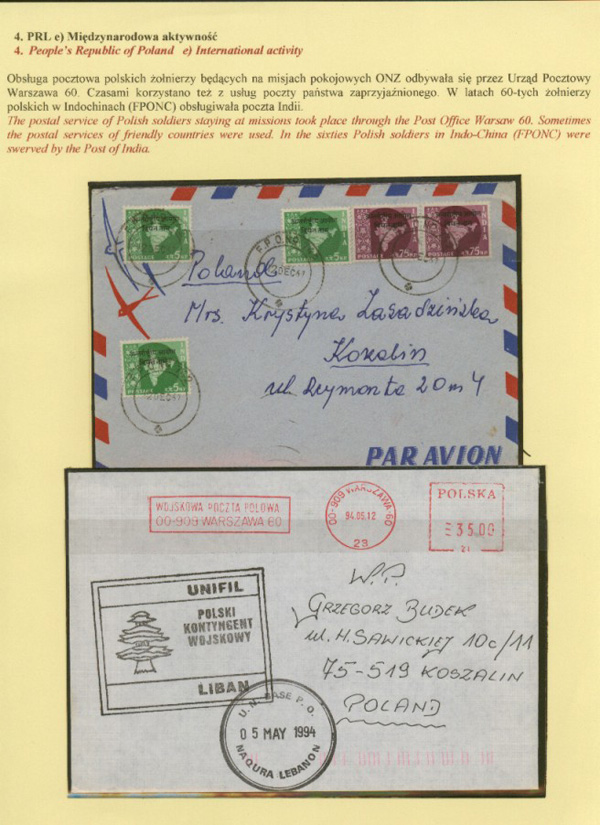 4. PRL e) Międzynarodowa aktywność
4. People's Republic of Poland e) International activity
Obsługa pocztowa polskich żołnierzy będących na misjach pokojowych ONZ odbywała się przez Urząd Pocztowy
Warszawa 60. Czasami korzystano też z usług poczty państwa zaprzyjaźnionego. W latach 60-tych żołnierzy
polskich w Indochinach (FPONC) obsługiwała poczta Indii.
The postal service of Polish soldiers staying at missions took place through the Post Office Warsaw 60. Sometimes
the postal services of friendly countries were used. In the sixties Polish soldiers in Indo-China (FPONC) were
swerved by the Post of India.
POSTAGE 5NP
POSTAGE 5NP
POSTAGE 75NP
POSTAGE 75NP
F.P.O.
Poland
Mrs. Krystyna Zasadzińska
Koszalin
ul. Reymonta 20 m 4
POSTAGE 5NP
PAR AVION
WOJSKOWA POCZTA POLOWA
00-909 WARSZAWA 60
00-909 WARSZAWA 60
94.05.12
23
POLSKA
35.00
W.P.
GRZEGORZ BUDEK
ul. H. SAWICKIEJ 10c/11
75-519 KOSZALIN
POLAND
UNIFIL
POLSKI
KONTYNGENT
WOJSKOWY
LIBAN
U.N. BASE P.O.
05 MAY 1994
NAQURA LEBANON